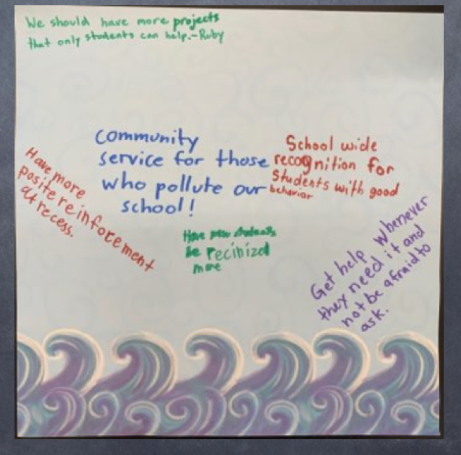 We should have more projects
that only students can help.-Ruby
community
service for those
who pollute our
school!
School wide
recognition for
Students with good
behavior
Have more
positereinforcement
at recess.
Have new students
be recinized
more
Get help whenever
they need it and
not be afraid to
ask.